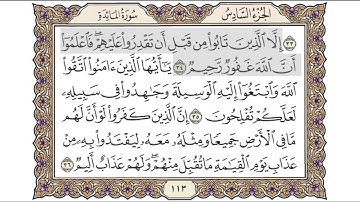 الجزء السادس سورة المائدة
٣٣ إلا الذين تابوا من قبل أن تقدروا عليهم فاعلموا
أن الله غفور رحيم ٣٤ يأيها الذين ءامنوا اتقوا
الله وابتغوا إليه الوسيلة وجهدوا في سبيله
لعلكم تفلحون ٣٥ إن الذين كفروا لو أن لهم
ما في الأرض جميعا ومثله معه ليفتدوا به من
عذاب يوم القيمة ما تقبل منهم ولهم عذاب أليم ٣٦
١١٣